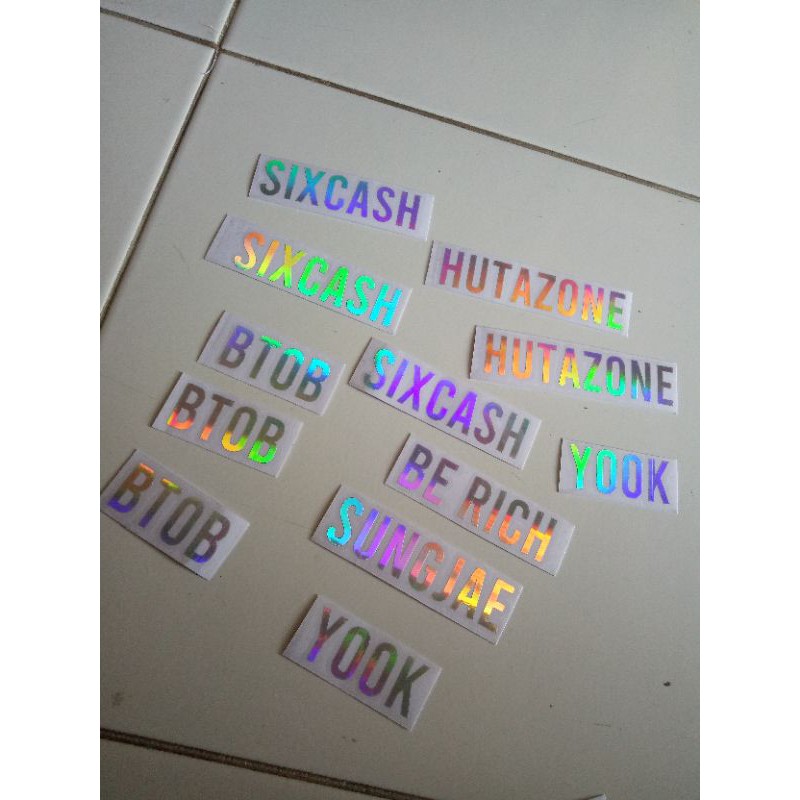 SIXCASH
SIXCASH
HUTAZONE
BTOB
SIXCASH
HUTAZONE
BTOB
BE RICH
YOOK
BTOB
SUNGJAE
YOOK